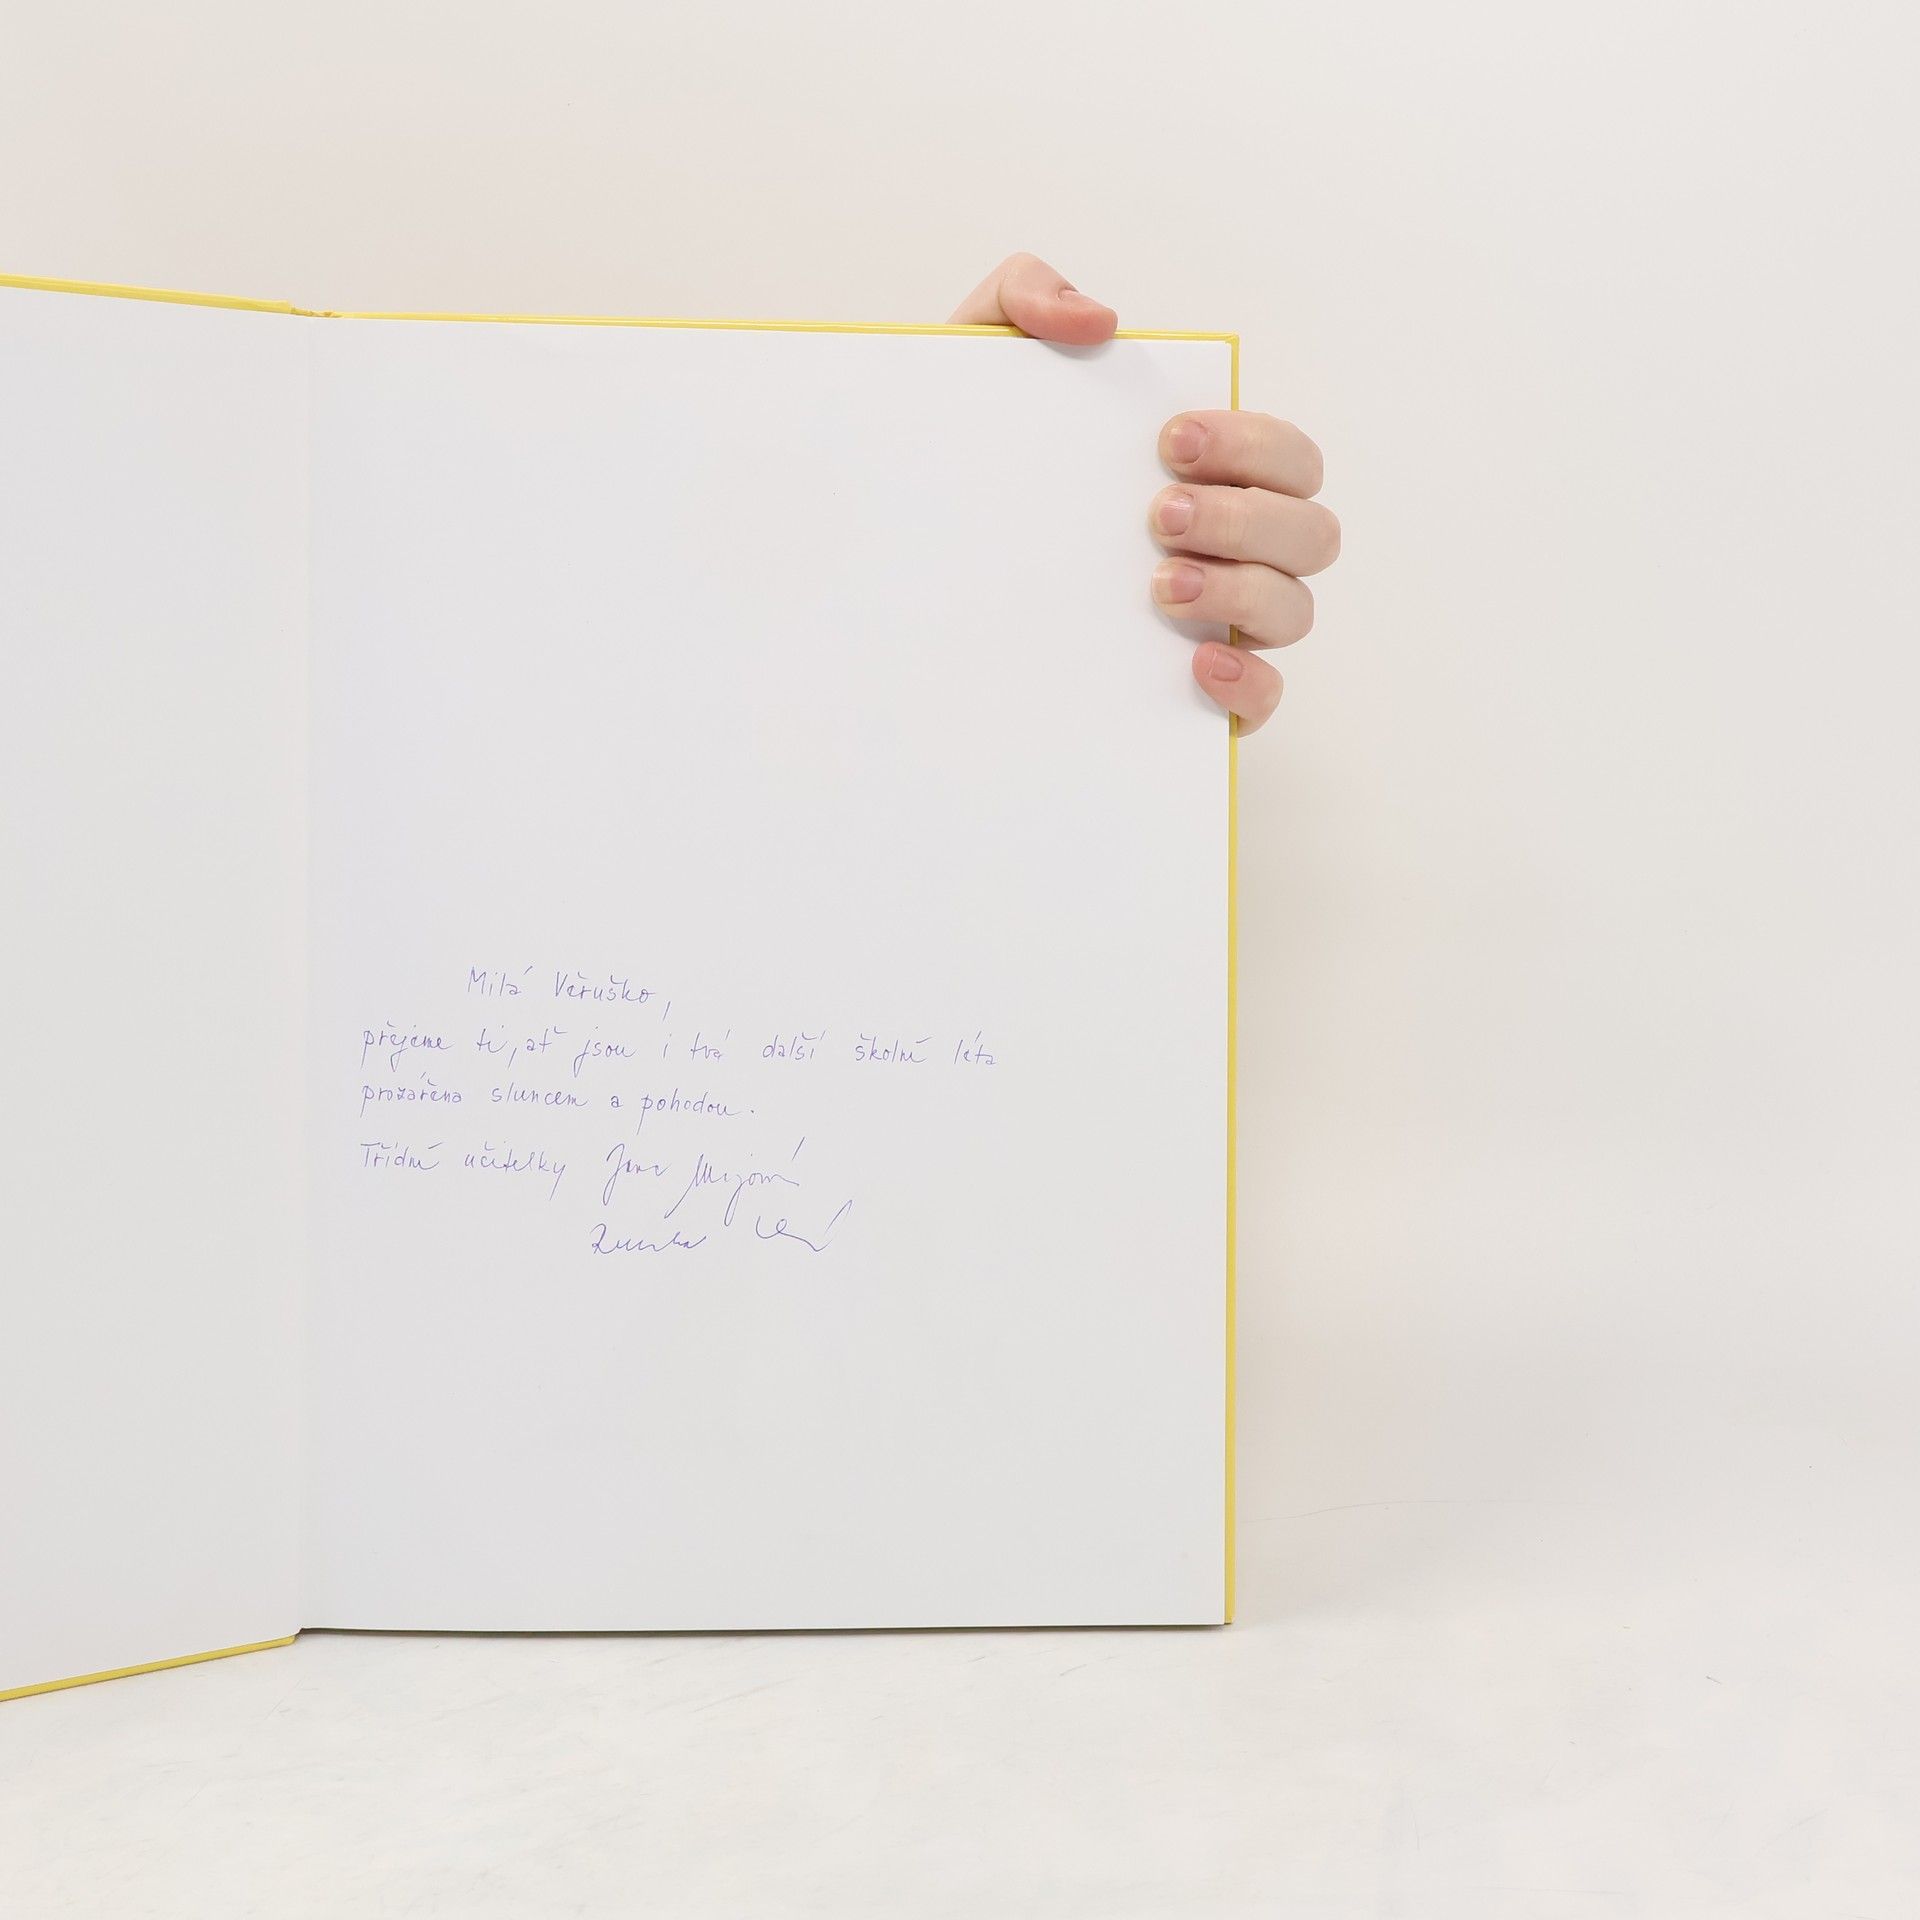 Milá Věruško,
přejeme ti, ať jsou i tvá další školní léta
prozářena sluncem a pohodou.
Třídní učitelky Jana